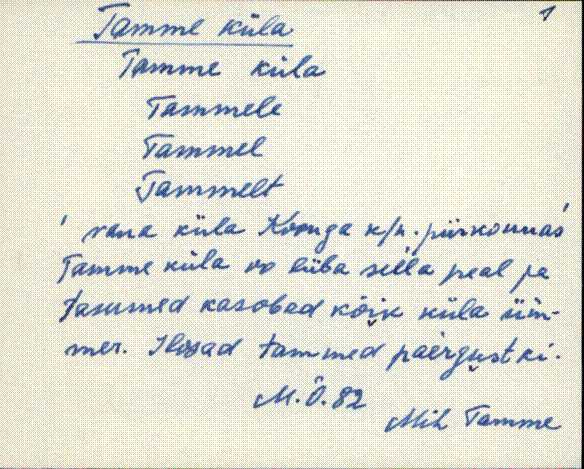 Tamme küla 1
Tamme küla
Tammele
Tammel
Tammelt
' vana küla Koonga k/n. piirkonnas'
Tamme küla oo liiba sella peal ja
tammed kasobad kõik küla üm-
mer. Ilosad tammed paergust ki.
M.Õ.82
Mih Tamme